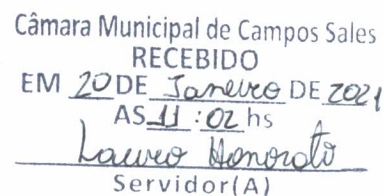 Câmara Municipal de Campos Sales
RECEBIDO
EM 20 DE Janeiro DE 2021
AS 11 : 02 hs
Lauro Honorato
Servidor(A)